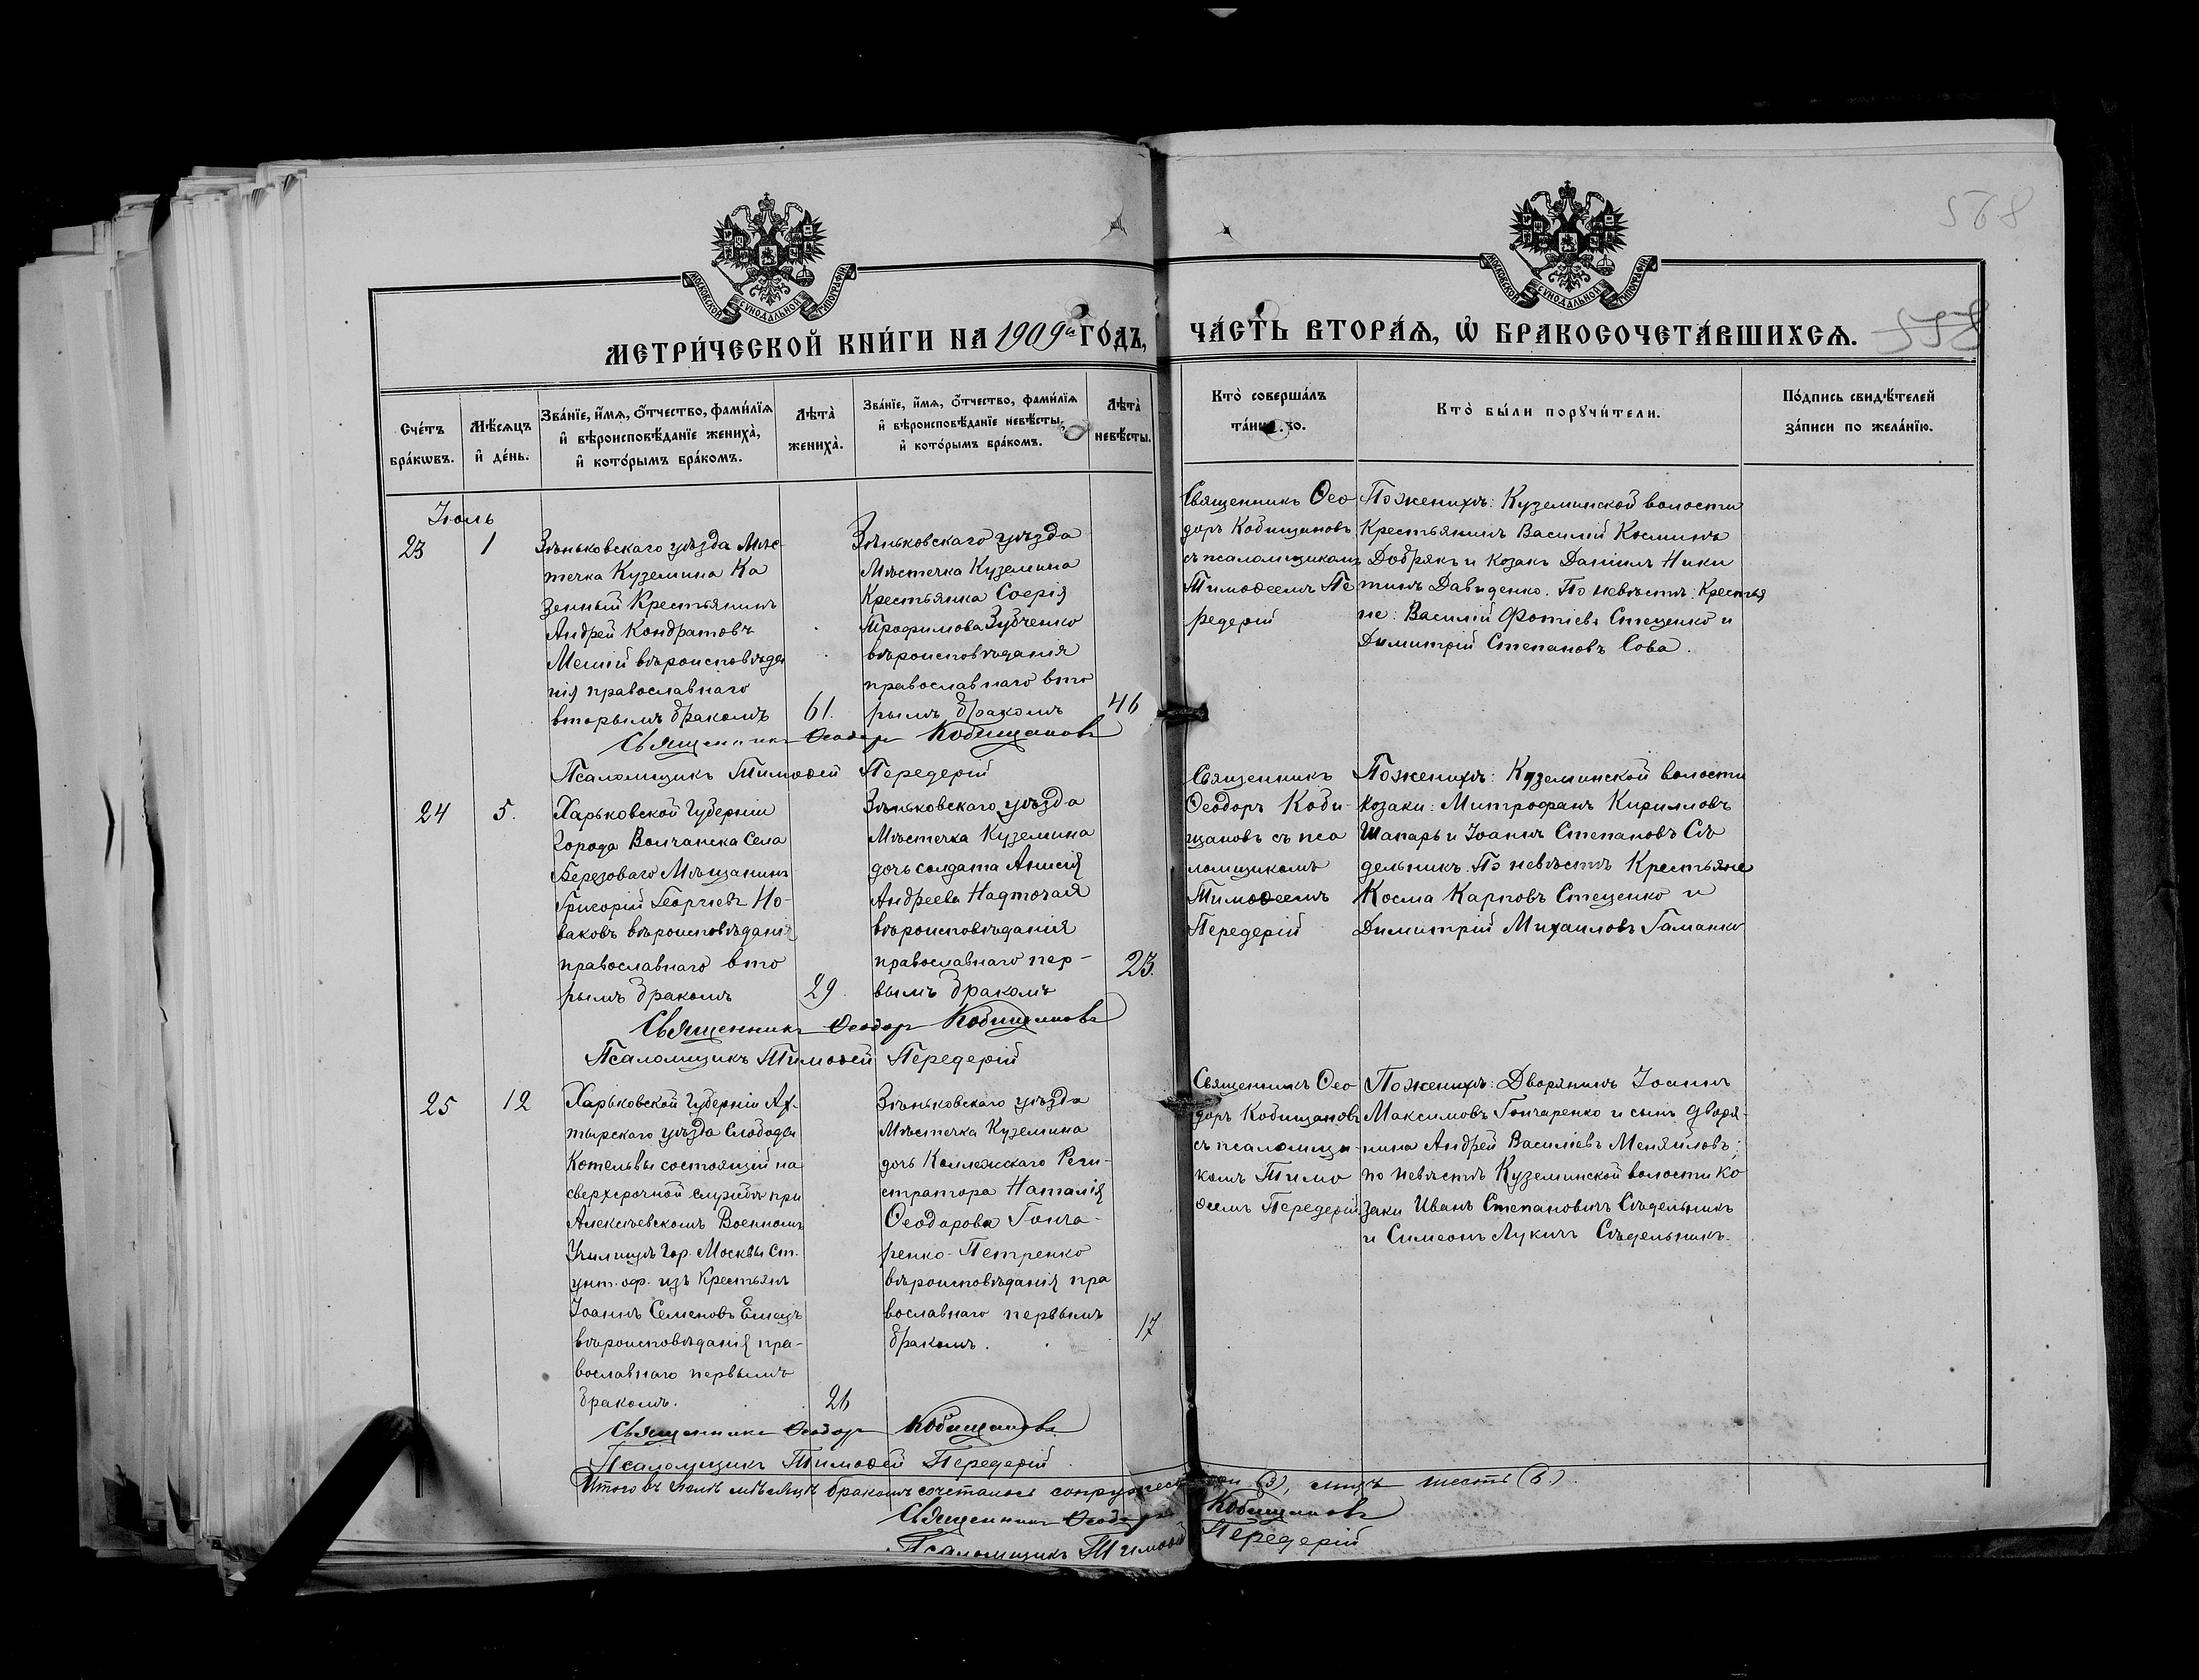 568
МОСКОВСКОЙ СУНОДАЛЬНОЙ ТИПОГРАФІИ
МОСКОВСКОЙ СУНОДАЛЬНОЙ ТИПОГРАФІИ
МЕТРИ́ЧЕСКОЙ КНИ́ГИ НА 1909й ГО́ДЪ,
ЧА́СТЬ ВТОРА́Ѧ, Ѡ҆ БРАКОСОЧЕТА́ВШИХСѦ.
558
Сче́тъ бра́кѡвъ.
Мѣ́сѧцъ и҆ де́нь.
Зва́нїе, и҆́мѧ, ѻ҆́тчество, фами́лїѧ
и҆ вѣроисповѣ́данїе жениха̀,
и҆ кото́рымъ бра́комъ.
Лѣта̀ жениха̀.
Зва́нїе, и҆́мѧ, ѻ҆́тчество, фами́лїѧ
и҆ вѣроисповѣ́данїе невѣ́сты,
и҆ кото́рымъ бра́комъ.
Лѣта̀ невѣ́сты.
Кто̀ соверша́лъ
Кто̀ бы́ли порꙋчи́тели.
По́дпись свидѣ́телей
за́писи по жела́нїю.
Іюль
23
1
Зѣньковскаго уѣзда Мѣс-
течка Куземина Ка
зенный Крестьянинъ
Андрей Кондратовъ
вѣроисповѣда
нія православнаго
вторымъ бракомъ
61.
Зѣньковскаго уѣзда
Мѣстечка Куземина
Крестьянка Софія
Трофимова Зубченко
вѣроисповѣданія
православнаго вто
рымъ бракомъ
46
Священникъ Ѳео
доръ Кобищановъ
съ псаломщикомъ
Тимоѳеемъ Пе
редерій
По женихѣ: Куземинской волости
Крестьянинъ Василій Косминъ
Добрякъ и козакъ Даніилъ Ники
тинъ Давиденко. По невѣстѣ: Крестья
не: Василій Фотіевъ Стеценко и
Димитрій Степановъ Сова.
Священникъ Ѳеодоръ Кобищановъ
Псаломщикъ Тимоѳей Передерій
24
5.
Харьковской Губерніи
города Волчанска Села
Березоваго Мѣщанинъ
Григорій Георгіевъ Но-
ваковъ вѣроисповѣданія
православнаго вто
рымъ бракомъ
29.
Зѣньковскаго уѣзда
Мѣстечка Куземина
дочь солдата Анисія
Андреева Надточая
вѣроисповѣданія
православнаго пер-
вымъ бракомъ
23.
Священникъ
Ѳеодоръ Коби-
щановъ съ пса
ломщикомъ
Тимоѳеемъ
Передерій
По женихѣ: Куземинской волости
Козаки: Митрофанъ Кирилловъ
Шапарь и Іоаннъ Степановъ Сѣ
дельникъ. По невѣстѣ Крестьяне
Косма Карповъ Стеценко и
Димитрій Михаиловъ Гаманко
Священникъ Ѳеодоръ Кобищановъ
Псаломщикъ Тимоѳей Передерій
25
12
Харьковской Губерніи Ах-
тырскаго уѣзда Слободы
Котельвы состоящій на
сверхсрочной службѣ при
Алексѣевскомъ Военномъ
Училищѣ гор. Москвы Ст.
унт. оф. изъ Крестьянъ
Іоаннъ Семеновъ Емецъ
вѣроисповѣданія пра-
вославнаго первымъ
бракомъ.
26
Зѣньковскаго уѣзда
Мѣстечка Куземина
дочь Коллежскаго Реги-
стратора Наталія
Ѳеодорова Гонча-
ренко-Петренко
вѣроисповѣданія пра
вославнаго первымъ
бракомъ.
17
Священникъ Ѳео
доръ Кобищановъ
съ псаломщи-
комъ Тимо
ѳеемъ Передерій
По женихѣ: Дворянинъ Іоаннъ
Максимовъ Гончаренко и сынъ дворя-
нина Андрей Василіевъ Меняйловъ;
по невѣстѣ Куземинской волости Ко
заки Иванъ Степановичъ Сѣдельникъ
и Симеонъ Лукичъ Сѣдельникъ.
Священникъ Ѳеодоръ Кобищановъ
Псаломщикъ Тимоѳей Передерій
Итого въ Іюлѣ мѣсяцѣ бракомъ сочеталось (3), лицъ шесть (6).
Священникъ Ѳеодоръ Кобищановъ
Псаломщикъ Тимоѳей Передерій